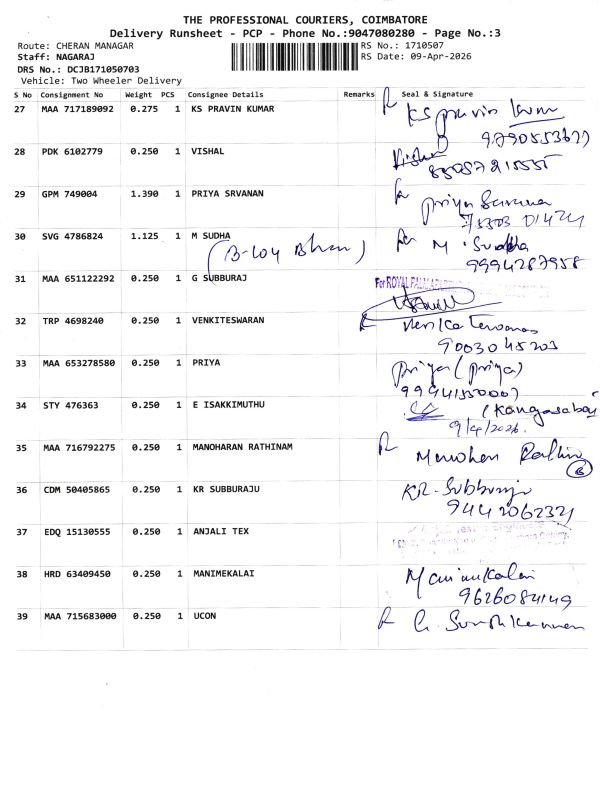 THE PROFESSIONAL COURIERS, COIMBATORE
Delivery Runsheet - PCP - Phone No.:9047080280 - Page No.:3
Route: CHERAN MANAGAR RS No.: 1710507
Staff: NAGARAJ RS Date: 09-Apr-2026
DRS No.: DCJB171050703
Vehicle: Two Wheeler Delivery
S No Consignment No Weight PCS Consignee Details Remarks Seal & Signature
27 MAA 717189092 0.275 1 KS PRAVIN KUMAR KS Pravin Kumar
28 PDK 6102779 0.250 1 VISHAL
29 GPM 749004 1.390 1 PRIYA SRVANAN Priya
30 SVG 4786824 1.125 1 M SUDHA M. Sudha
9994287958
31 MAA 651122292 0.250 1 G SUBBURAJ For ROYAL
32 TRP 4698240 0.250 1 VENKITESWARAN
9003045203
33 MAA 653278580 0.250 1 PRIYA Priya (Priya)
34 STY 476363 0.250 1 E ISAKKIMUTHU
9/4/2026
35 MAA 716792275 0.250 1 MANOHARAN RATHINAM
36 CDM 50405865 0.250 1 KR SUBBURAJU KR. Subburaju
9442062321
37 EDQ 15130555 0.250 1 ANJALI TEX
38 HRD 63409450 0.250 1 MANIMEKALAI Manimekalai
9626084149
39 MAA 715683000 0.250 1 UCON